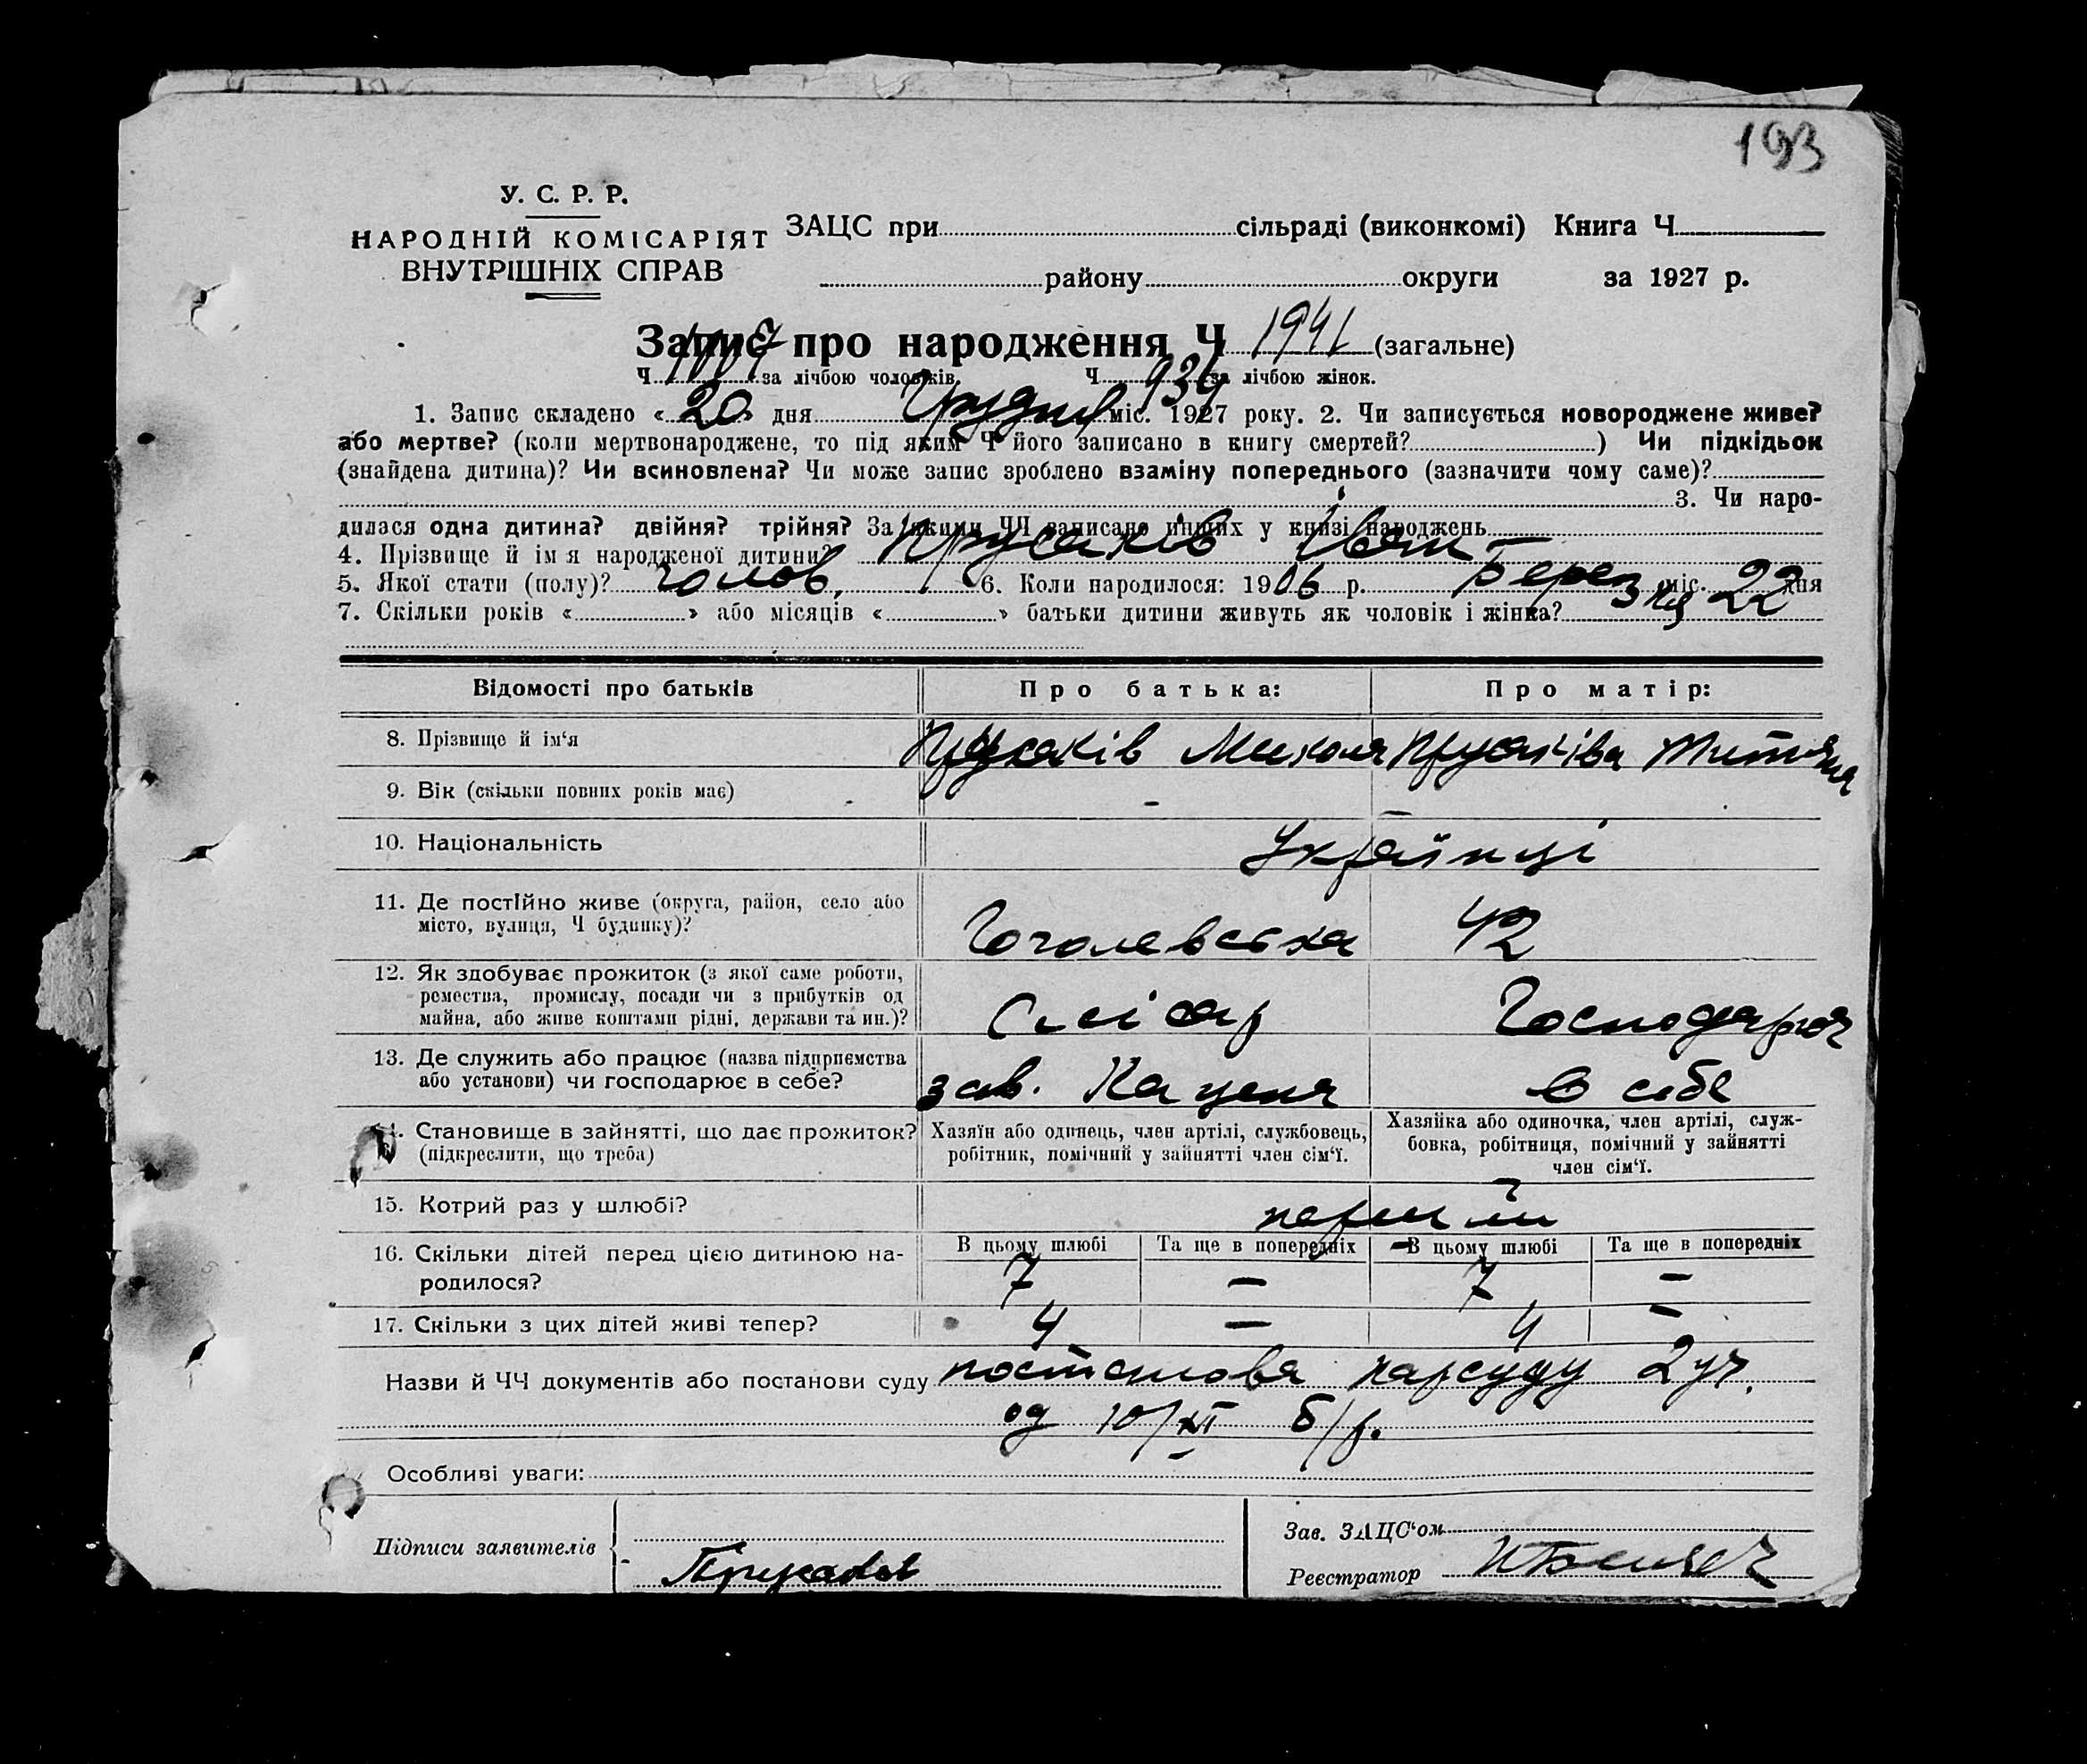 193
У. С. Р. Р.
НАРОДНІЙ КОМІСАРІЯТ
ВНУТРІШНІХ СПРАВ
ЗАЦС при сільраді (виконкомі) Книга Ч.
району округи за 1927 р.
Запис про народження Ч 1941 (загальне)
Ч. 1007 за лічбою чоловіків. Ч. 934 за лічбою жінок.
1. Запис складено « 20 » дня Грудня міс. 1927 року. 2. Чи записується новороджене живе?
або мертве? (коли мертвонароджене, то під яким Ч його записано в книгу смертей? ) Чи підкідьок
(знайдена дитина)? Чи всиновлена? Чи може запис зроблено взаміну попереднього (зазначити чому саме)?
3. Чи наро-
дилася одна дитина? двійня? трійня? За якими ЧЧ записано инших у книзі народжень
4. Прізвище й ім я народженої дитини? Прусаків Іван
5. Якої стати (полу)? чолов. 6. Коли народилося: 1906 р. Березня міс. 22 дня
7. Скільки років « » або місяців « » батьки дитини живуть як чоловік і жінка?
Відомості про батьків Про батька: Про матір:
8. Прізвище й ім‘я Прусаків Микола Прусаківа Тит
9. Вік (скільки повних років має) -
10. Національність Українці
11. Де постійно живе (округа, район, село або
місто, вулиця, Ч будинку)? Гоголевська 42
12. Як здобуває прожиток (з якої саме роботи,
ремества, промислу, посади чи з прибутків од
майна, або живе коштами рідні, держави та ин.)? Слісар Господарює
13. Де служить або працює (назва підприємства
або установи) чи господарює в себе? зав. Каценя в себе
14. Становище в зайнятті, що дає прожиток?
(підкреслити, що треба)
Хазяїн або одинець, член артілі, службовець,
робітник, помічний у зайнятті член сім‘ї.
Хазяйка або одиночка, член артілі, служ-
бовка, робітниця, помічний у зайнятті
член сім‘ї.
15. Котрий раз у шлюбі? перший
16. Скільки дітей перед цією дитиною на-
родилося?
В цьому шлюбі Та ще в попередніх В цьому шлюбі Та ще в попередніх
7 – 7 –
17. Скільки з цих дітей живі тепер? 4 – 4 –
Назви й ЧЧ документів або постанови суду постанова нарсуду 2 уч.
од 10/XI б/р.
Особливі уваги:
Підписи заявителів Прусаков
Зав. ЗАЦС‘ом
Реєстратор